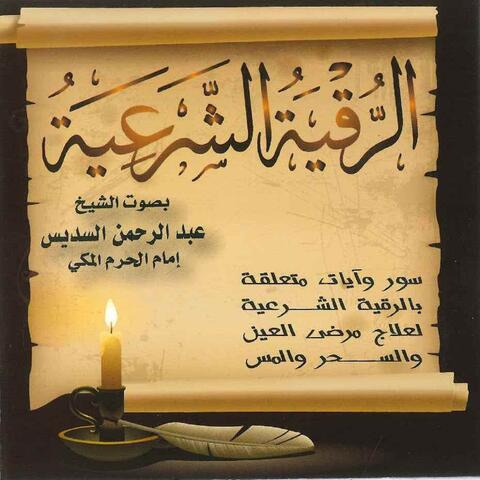 الرُّقية الشَّرعية
بصوت الشيخ
عبد الرحمن السديس
إمام الحرم المكي
سور وآيات متعلقة
بالرقية الشرعية
لعلاج مرضى العين
والسحر والمس